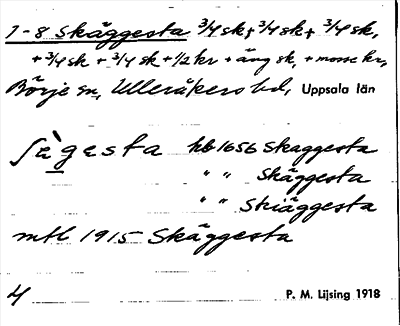 1-8 Skäggesta 3/4 sk + 3/4 sk + 3/4 sk,
+ 3/4 sk + 3/4 sk + 1/2 kr + äng sk, + mosse kr,
Börje sn, Ulleråkers hd, Uppsala län
hb 1656 Skaggesta
" " Skäggesta
" " Skiäggesta
mtl 1915 Skäggesta
4 P. M. Lijsing 1918